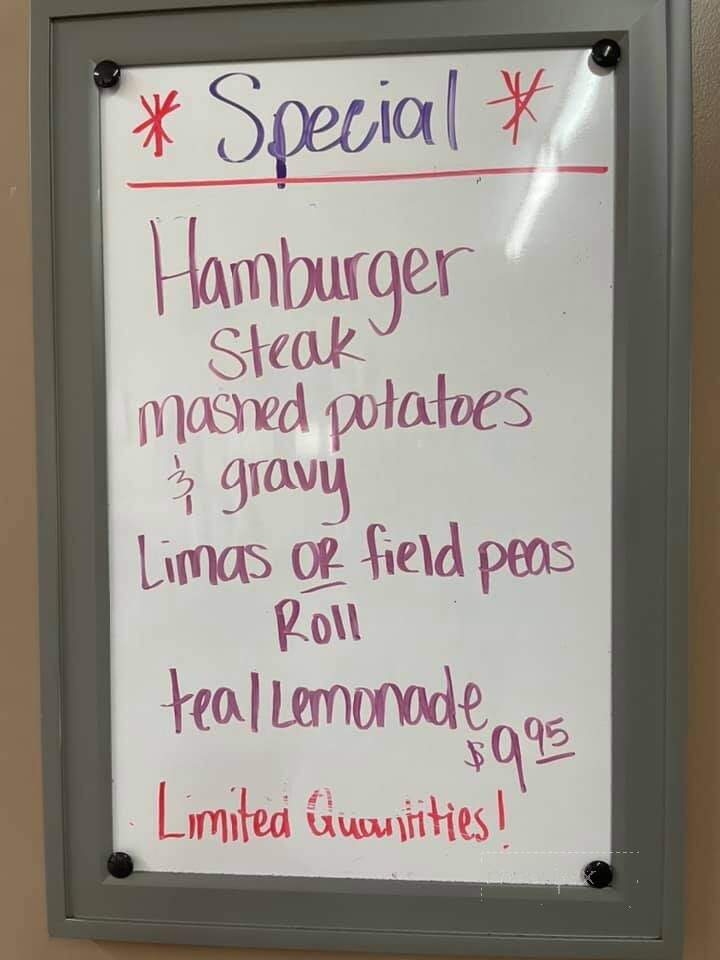 * Special *
Hamburger
Steak
mashed potatoes
& gravy
Limas OR field peas
Roll
tea/Lemonade
$9.95
Limited Quantities!